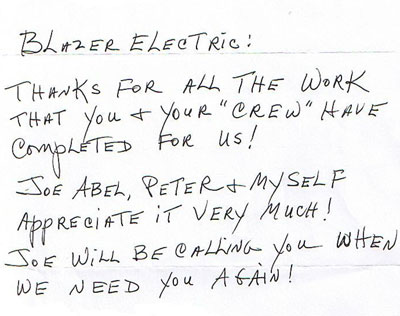 BLAZER ELECTRIC:
THANKS FOR ALL THE WORK
THAT YOU & YOUR "CREW" HAVE
COMPLETED FOR US!
JOE ABEL, PETER & MYSELF
APPRECIATE IT VERY MUCH!
JOE WILL BE CALLING YOU WHEN
WE NEED YOU AGAIN!